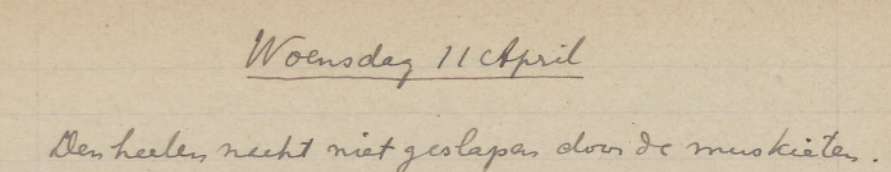 Woensdag 11 April
Den heelen nacht niet geslapen door de muskieten.